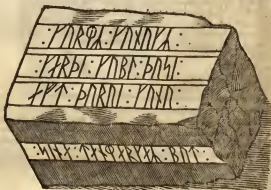 ᛬ ᚴᚢᚱᛘᛦ ᛬ ᚴᚢᚾᚢᚴᛦ ᛬
᛬ ᚴᛅᚱᚦᛁ ᛬ ᚴᚢᛒᛚ ᛬ ᚦᚢᛋᛁ ᛬
᛬ ᛅᚠᛏ ᛬ ᚦᚢᚱᚢᛁ ᛬ ᚴᚢᚾᚢ ᛬
᛬ ᛋᛁᚾᛅ ᛬ ᛏᛅᚾᛘᛅᚱᚴᛅᛦ ᛬ ᛒᚢᛏ ᛬